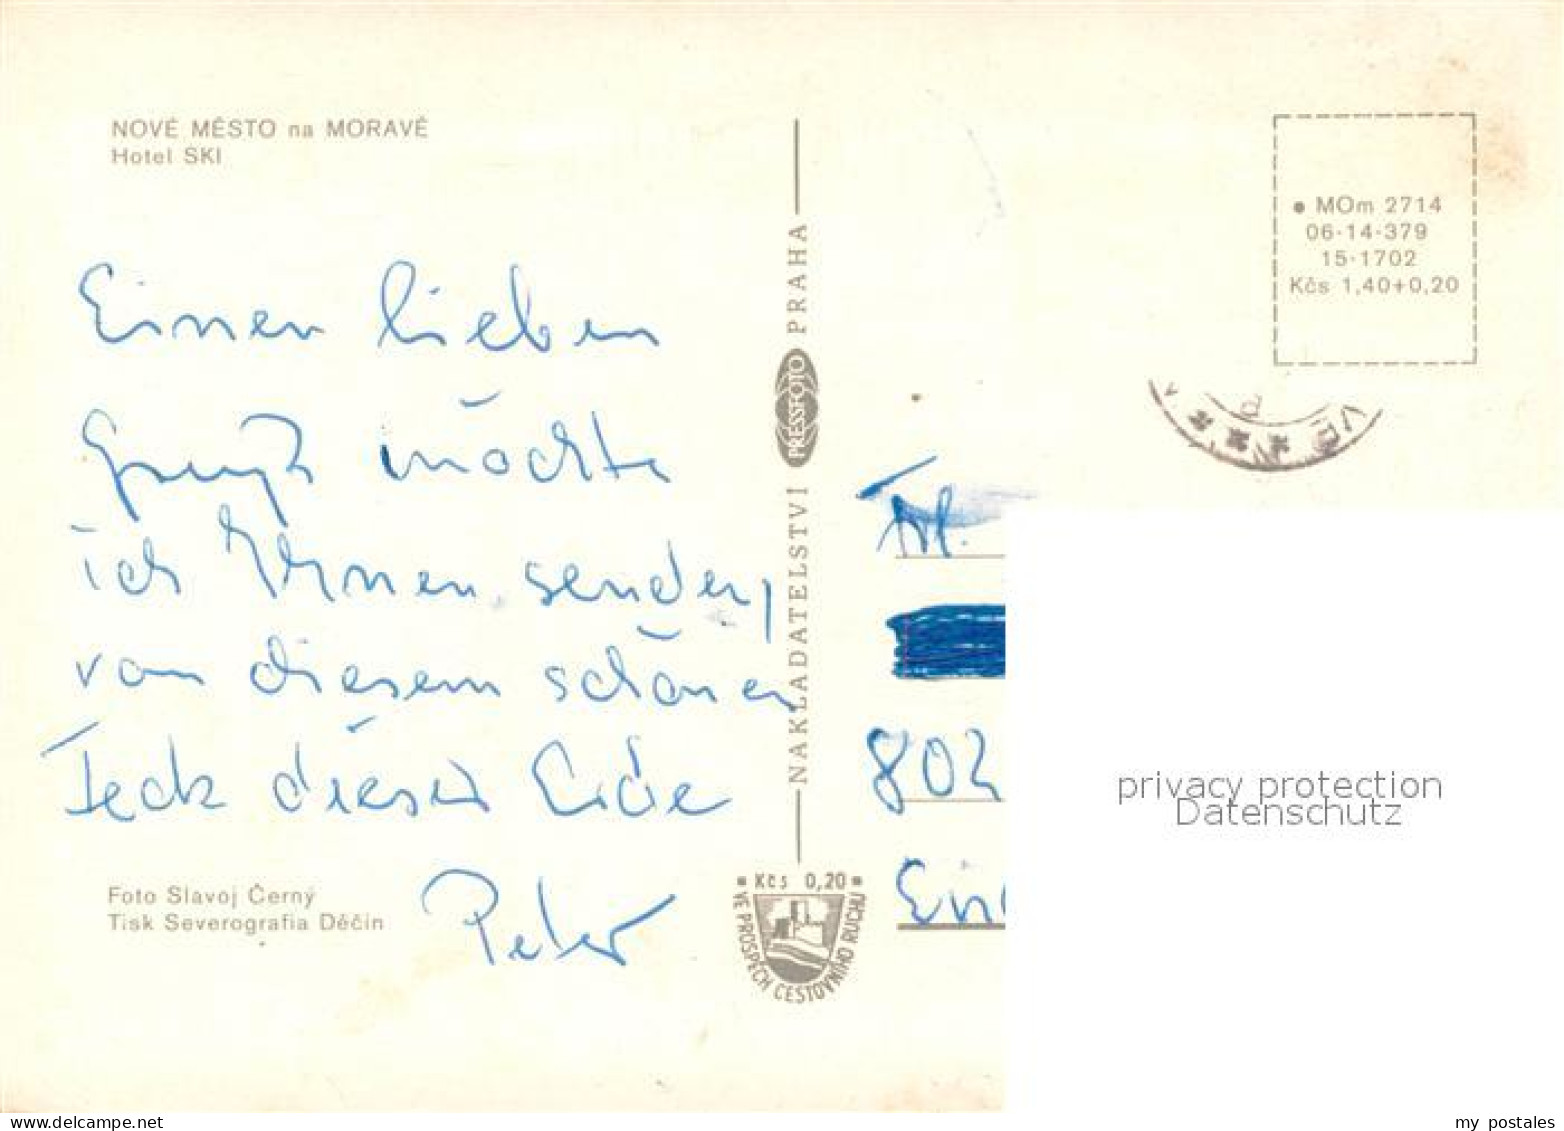 NOVÉ MĚSTO na MORAVĚ
Hotel SKI
Einen lieben
Gruß möchte
ich Ihnen senden,
von diesem schönen
Fleck dieser Erde
Peter
Foto Slavoj Černý
Tisk Severografia Děčín
NAKLADATELSTVÍ PRESSFOTO PRAHA
Kčs 0,20
VE PROSPĚCH CESTOVNÍHO RUCHU
• MOm 2714
06-14-379
15-1702
Kčs 1,40+0,20
VĚ
Frl.
802
privacy protection
Datenschutz
www.delcampe.net
my_postales